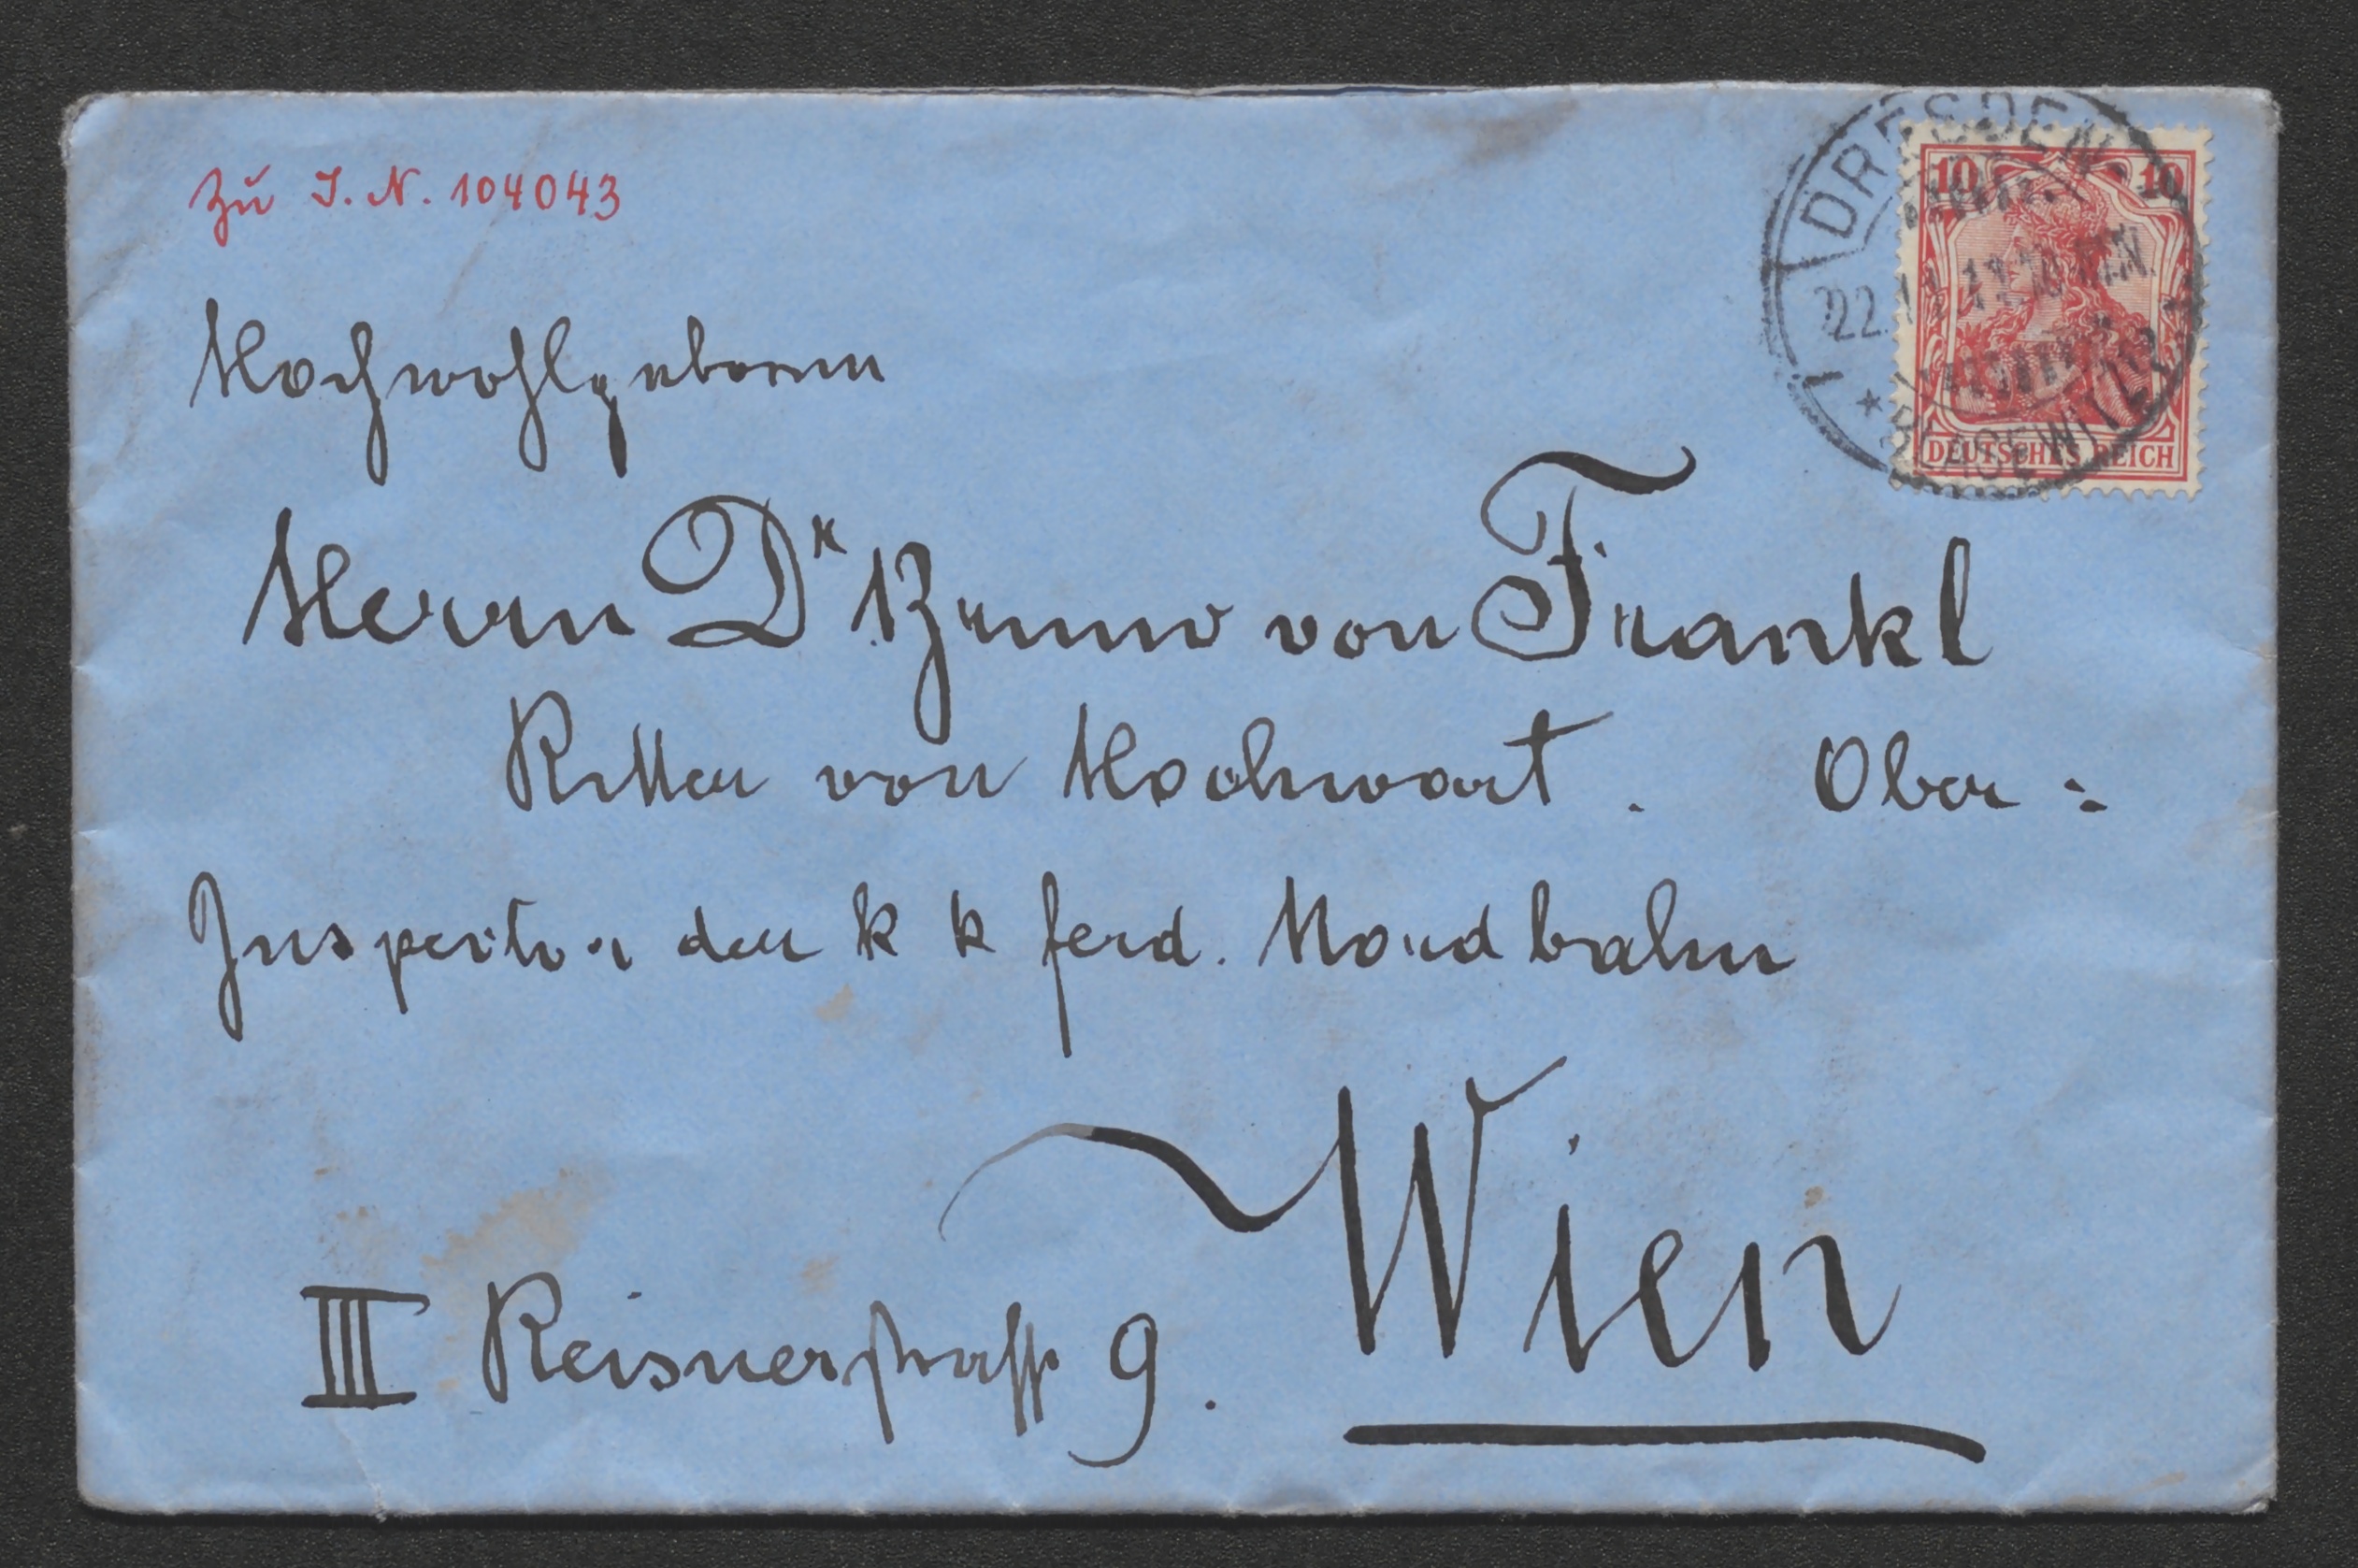 zu I. N. 104043
DRESDEN
10 10
22.
* BLASEWITZ
DEUTSCHES REICH
Hochwohlgeboren
Herrn Dr Bruno von Frankl
Ritter von Hochwart. Ober=
Inspector der k k ferd. Nordbahn
Wien
III Reisnerstrasse 9.